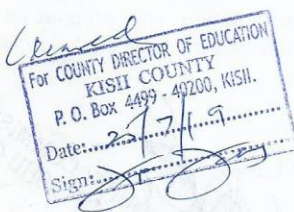 Cleared
For COUNTY DIRECTOR OF EDUCATION
KISII COUNTY
P. O. Box 4499 - 40200, KISII.
Date:
Sign: